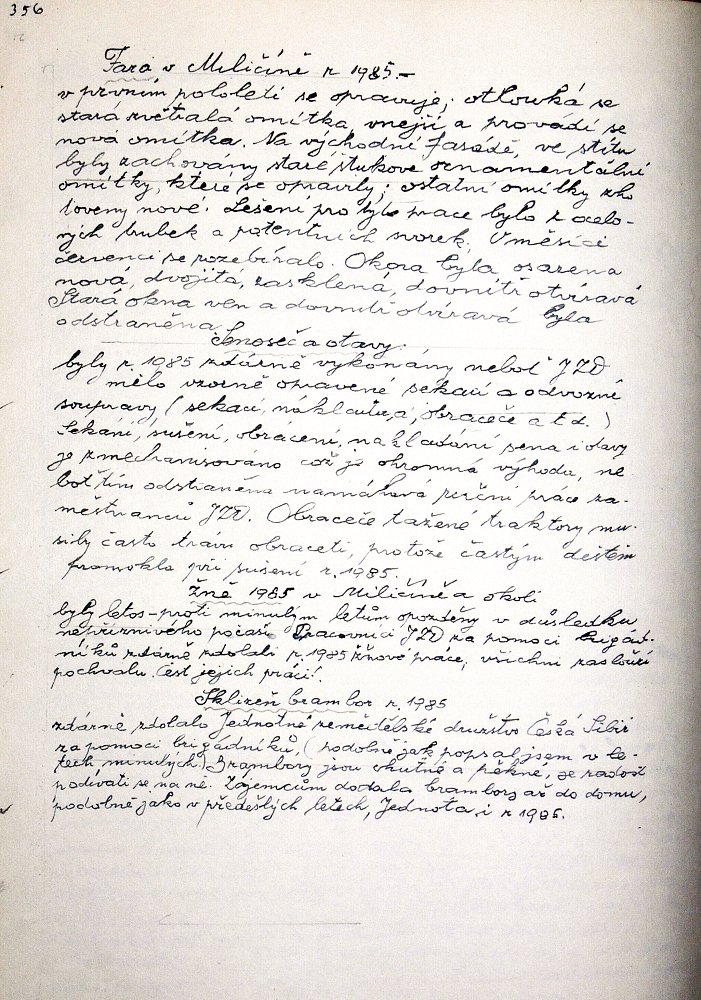 356
Fara v Miličíně r 1985.-
v prvním pololetí se opravuje, otlowká se
stará zvětralá omítka, vnější, a provádí se
nová omítka. Na východní fasádě, ve štítu
byly zachovány staré štukové ornamentální
omítky, které se opravily; ostatní omítky zho
toveny nové. Lešení pro tyto práce bylo z ocelo-
vých trubek a patentních svorek. V měsíci
červenci se rozebíralo. Okna byla osazena
nová, dvojitá, zasklená, dovnitř otvíravá
Stará okna ven a dovnitř otvíravá byla
odstraněna.
Senoseč a otavy.
byly r. 1985 zdárně vykonány neboť JZD
mělo vzorně opravené sekací a odvozné
soupravy (sekací, nakladače, obraceče a t d. )
Sekání, sušení, obrácení, nakládání sena i otavy
je zmechanisováno což je ohromná výhoda, ne
boť tím odstraněna namáhavá ruční práce za-
městnanců JZD. Obraceče tažené traktory mu-
sily často trávu obraceti, protože častým deštěm
promokla při sušení r. 1985.
Žně 1985 v Miličíně a okolí
byly letos-proti minulým letům opozděny v důsledku
nepříznivého počasí. Pracovníci JZD za pomoci brigád-
níků zdárně zdolali r. 1985 žňové práce, všichni zaslouží
pochvalu. Čest jejich práci!
Sklizeň brambor r. 1985
zdárně zdolalo Jednotné zemědělské družstvo Česká Sibiř
za pomoci brigádníků, (podobně jak popsal jsem v le-
tech minulých.) Brambory jsou chutné a pěkné, je radost
podívati se na ně. Zájemcům dodala brambory až do domu,
podobně jako v předešlých letech, Jednota i r 1985.